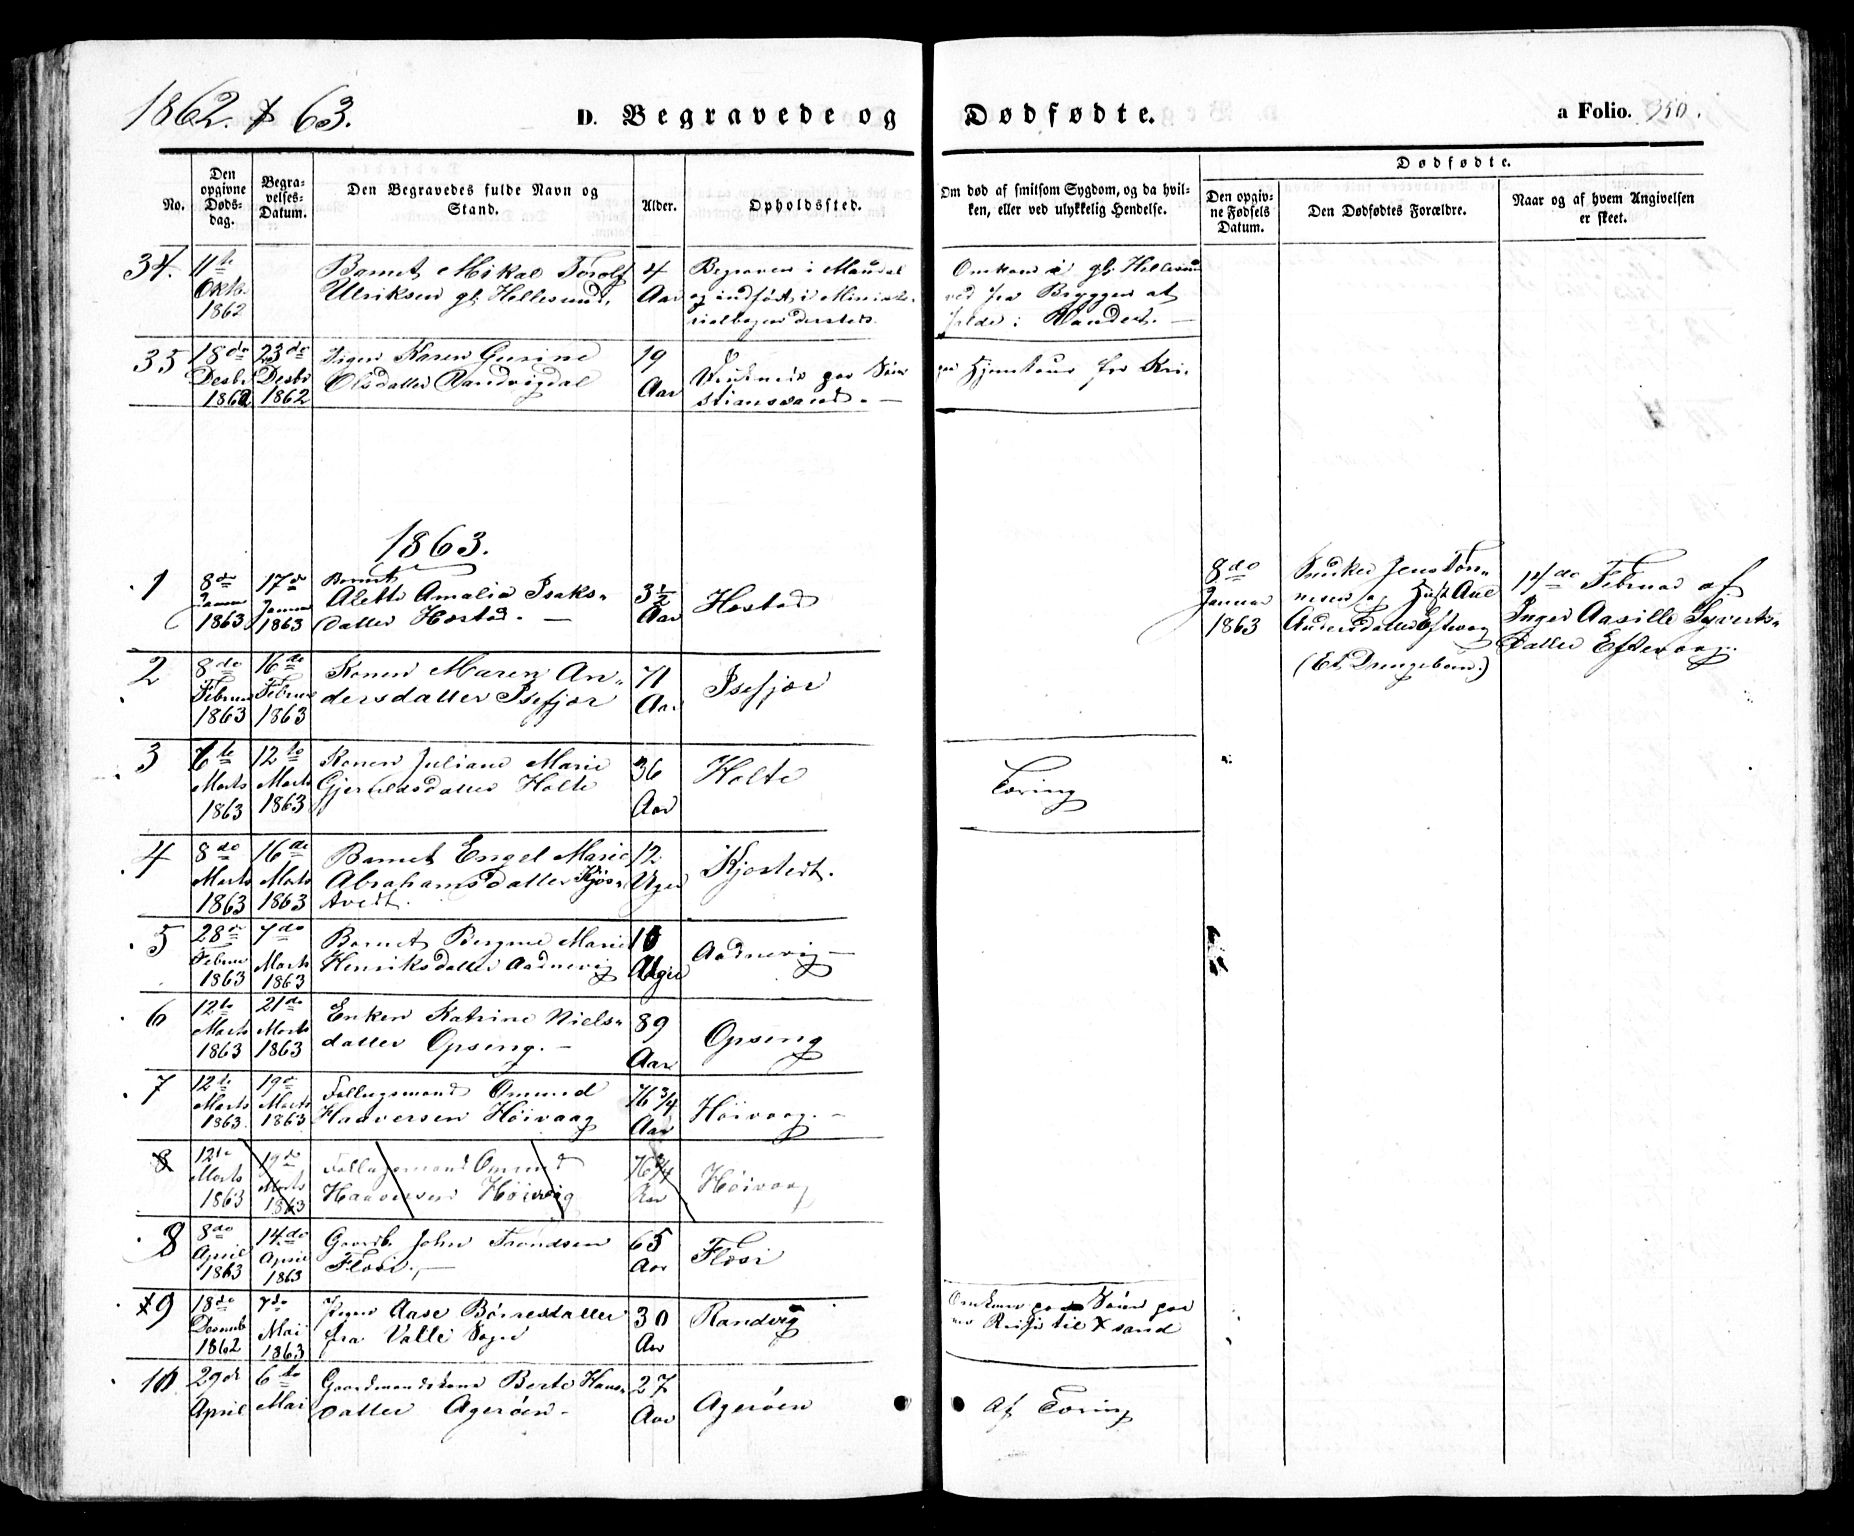 1862. & 63.
D. Begravede og Dødfødte.
a Folio. 350.
No.
Den opgivne Døds-dag.
Begra-velses-Datum.
Den Begravedes fulde Navn og Stand.
Alder.
Opholdssted.
Om død af smitsom Sygdom, og da hvil-
ken, eller ved ulykkelig Hendelse.
Dødfødte.
Den opgiv-ne Fødsels Datum.
Den Dødfødtes Forældre.
Naar og af hvem Angivelsen er skeet.
34. 11te Oktb. 1862
Barnet Mikal Torolf
Ulriksen gl. Hellesund.
4 Aar
Begraven i Mandal
og indført i Ministe-
rialbogen dersteds.
Omkom i gl. Hellesund
ved fra Bryggen at
falde i Vandet. —
35 18de Desbr 1862 23de Desbr 1862
Pigen Karen Gurine
Olsdatter Randvigdal
19 Aar
Druknede paa Søen
paa Hjemtour fra Kri-
stianssand. —
1863.
1 8de Januar 1863 17de Januar 1863
Barnet
Alette Amalia Isaks-
datter Hæstad. —
3½ Aar
Hæstad
8de Januar 1863
Snedker Jens Tøn-
nesen og Hust. Ane
Andersdatter Eftevaag
(Et Drengebarn.)
14de Februar af
Inger Aasille Syverts-
datter Eftevaag.
2 8de Februar 1863 16de Februar 1863
Konen Maren An-
dersdatter Isefjær
71 Aar
Isefjær
3 6te Marts 1863 12te Marts 1863
Konen Juliane Marie
Gjeruldsdatter Holte
36 Aar
Holte
Tæring
4 8de Marts 1863 16de Marts 1863
Barnet Engel Marie
Abrahamsdatter Kjøs-
tvedt.
12 Uger
Kjøstvedt.
5 28de Februar 1863 7de Marts 1863
Barnet Bergine Marie
Henriksdatter Aadnevig
10 Uger
Aadnevig —
6 12te Marts 1863 21de Marts 1863
Enken Katrine Niels-
datter Opseng. —
89 Aar
Opseng
7 12te Marts 1863 19de Marts 1863
Føllugsmand Omund
Haaversen Höivaag
76 3/4 Aar
Höivaag. —
8 12te Marts 1863 19de Marts 1863
Føllugsmand Omund
Haaversen Höivaag
76 3/4 Aar
Höivaag
8 8de April 1863 14de April 1863
Gaardb. John Trondsen
Fløsi. —
65 Aar
Fløsi
9 18de Decemb 1862 7de Mai 1863
Pigen Aase Børresdatter
fra Valle Sogn
30 Aar
Randvig
Omkom paa Søen paa
en Reise til Xsand
10 29de April 6te Mai
Gaardmandskone Berte Hans-
datter Agerøen —
27 Aar
Agerøen
Af Tæring